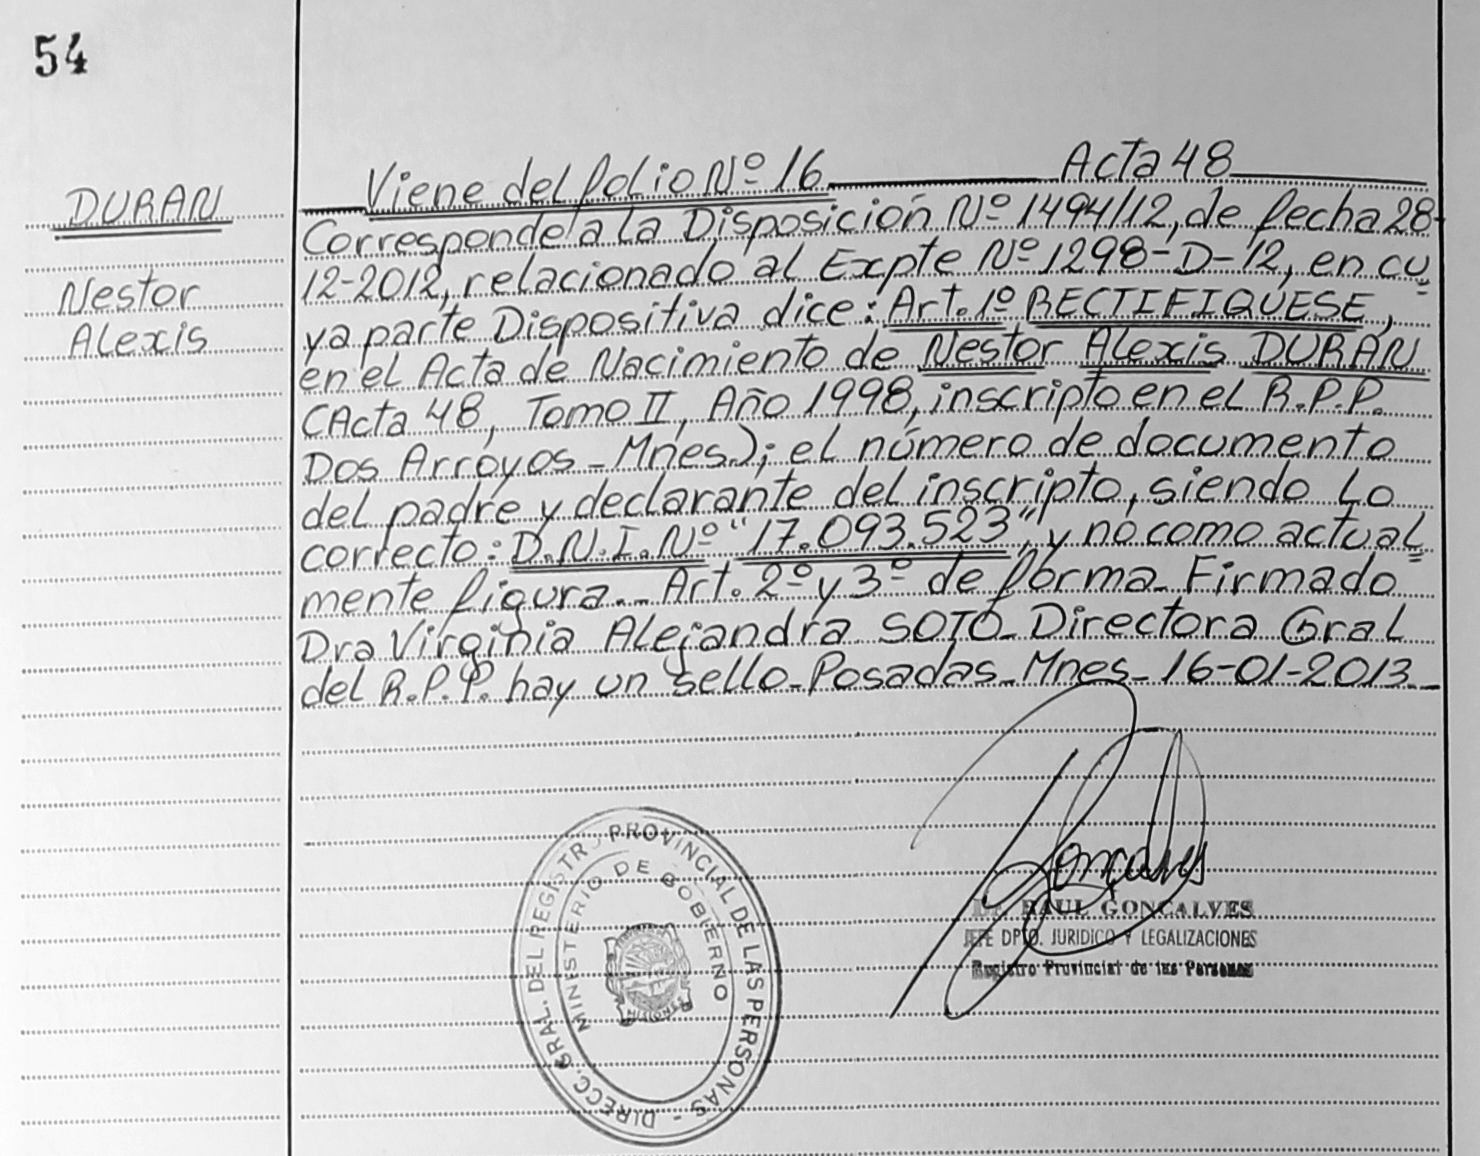 54
DURAN
Nestor
Alexis
Viene del folio Nº 16 Acta 48
Corresponde a la Disposición Nº 1494/12, de fecha 28-
12-2012, relacionado al Expte Nº 1298-D-12, en cu=
ya parte Dispositiva dice: Art. 1º RECTIFIQUESE,
en el Acta de Nacimiento de Nestor Alexis DURAN
(Acta 48, Tomo II, Año 1998, inscripto en el R.P.P.
Dos Arroyos - Mnes.); el número de documento
del padre y declarante del inscripto, siendo lo
correcto: D.N.I. Nº "17.093.523", y no como actual=
mente figura.- Art. 2º y 3º de forma- Firmado
Dra Virginia Alejandra SOTO- Directora Gral
del R.P.P. hay un sello- Posadas- Mnes- 16-01-2013.-
DIRECC. GRAL. DEL REGISTRO PROVINCIAL DE LAS PERSONAS -
MINISTERIO DE GOBIERNO
MISIONES
Goncalves
Dr. RAUL GONCALVES
JEFE DPTO. JURIDICO Y LEGALIZACIONES
Registro Provincial de las Personas